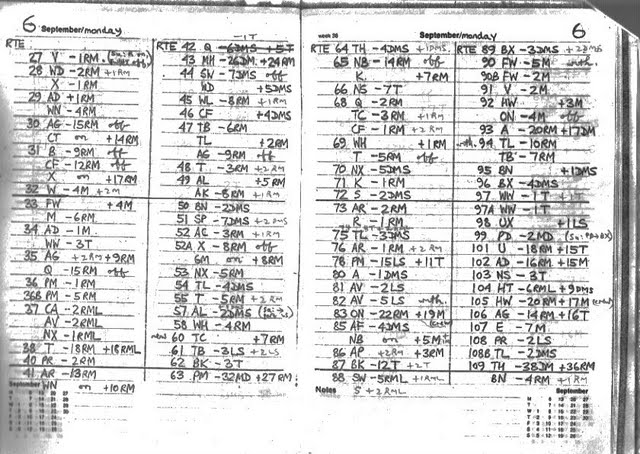 6 September/monday
RTE
27 V -1RM
28 WD -2RM +1RM
X -1RM
29 AD +1RM
WN -4RM
30 AG -15RM off
CT on +14RM
31 B -9RM off
CF -12RM off
X on +17RM
32 W -4M +2M
33 FW +4M
M -6RM
34 AD -1M
WN -3T
35 AG +2RM +9RM
Q -15RM off
36 PM -1RM
36B PM -5RM
37 CA -2RML
AV -2RML
NX -1RML
38 T -18RM +18RML
40 PR -2RM
41 AR -13RM
WN on +10RM
September
-1T
RTE 42 Q -6DMS +5T
43 MH -26DM +24RM
44 SW -7DMS off
WD +5DMS
45 WL -8RM +1RM
46 CF +4DMS
47 TB -6RM
TL +2RM
AG -9RM off
48 T -3RM +2RM
49 AL +5RM
AK -8RM +1RM
50 BN -2DMS
51 SP -7DMS +2DMS
52 AC -3RM +1RM
52A X -8RM off
GM on +8RM
53 NX -5RM
54 TL -4DMS
55 T -5RM +2RM
57 AL -2DMS
58 WH -4RM
new 60 TC +7RM
61 TB -3LS +2LS
62 BK -3T
63 PM -32MD +27RM
week 36 September/monday 6
RTE 64 TH -4DMS +1DMS
65 NB -14RM off
K +7RM
66 NS -7T
68 Q -2RM
TC -3RM +1RM
CF -1RM +2RM
69 WH +1RM
T -5RM off
70 NX -5DMS
71 K -1RM
72 S -2DMS
73 AR -2RM
R -1RM
75 TL -3DMS
76 AR -1RM +2RM
78 PN -15LS +11T
80 A -1DMS
81 AV -2LS
82 AV -5LS with.
83 ON -22RM +19M
85 AF -4DMS
NB on +5M
86 AP +2RM +3RM
87 BK -12T +2T
88 SW -5RML +1RML
S +2RML
Notes
RTE 89 BX -3DMS +2DMS
90 FW -5M with.
90B FW -2M
91 V -2M
92 HW +3M
ON -4M off
93 A -20RM +17DM
with. 94 TL -10RM
TB -7RM
95 BN +1DMS
96 BX -4DMS
97 WW -1T +1T
97A WW -1T
98 UX +1LS
99 PD -2MD
101 U -18RM +15T
102 AD -16RM +15M
103 NS -3T
104 HT -6RML +9DMS
105 HW -20RM +17M
106 AG -14RM +16T
107 E -7M
108 PR -2LS
108B TL -2DMS
109 TH -38DM +36RM
BN -4RM +1RM
September